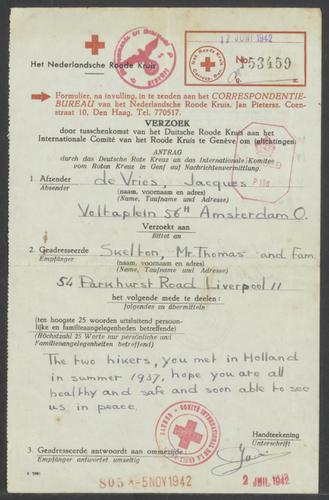 17 JUNI 1942
Het Nederlandsche Roode Kruis
153459
Formulier, na invulling, in te zenden aan het CORRESPONDENTIE-
BUREAU van het Nederlandsche Roode Kruis, Jan Pietersz. Coen-
straat 10, Den Haag, Tel. 770517.
VERZOEK
door tusschenkomst van het Duitsche Roode Kruis aan het
Internationale Comité van het Roode Kruis te Genève om inlichtingen.
ANTRAG
durch das Deutsche Rote Kreuz an das Internationale Komitee
vom Roten Kreuz in Genf auf Nachrichtenvermittlung.
1 Afzender de Vries, Jacques
Absender (naam, voornaam en adres)
(Name, Taufname und Adresse)
Voltaplein 56 H Amsterdam O.
Verzoekt aan
Bittet an
2. Geadresseerde Skelton, Mr. Thomas and Fam.
Empfänger (naam, voornaam en adres)
(Name, Taufname und Adresse)
54 Parkhurst Road Liverpool 11
het volgende mede te deelen:
folgendes zu übermitteln
(ten hoogste 25 woorden uitsluitend persoon-
lijke en familieaangelegenheden betreffende)
(Höchstzahl 25 Worte nur persönliche und
Familienangelegenheiten betreffend)
The two hikers, you met in Holland
in summer 1937, hope you are all
healthy and safe and soon able to see
us in peace.
Handteekening
Unterschrift
3 Geadresseerde antwoordt aan ommezijde:
Empfänger antwortet umseitig
805 - 5 NOV 1942
2 JUIL 1942